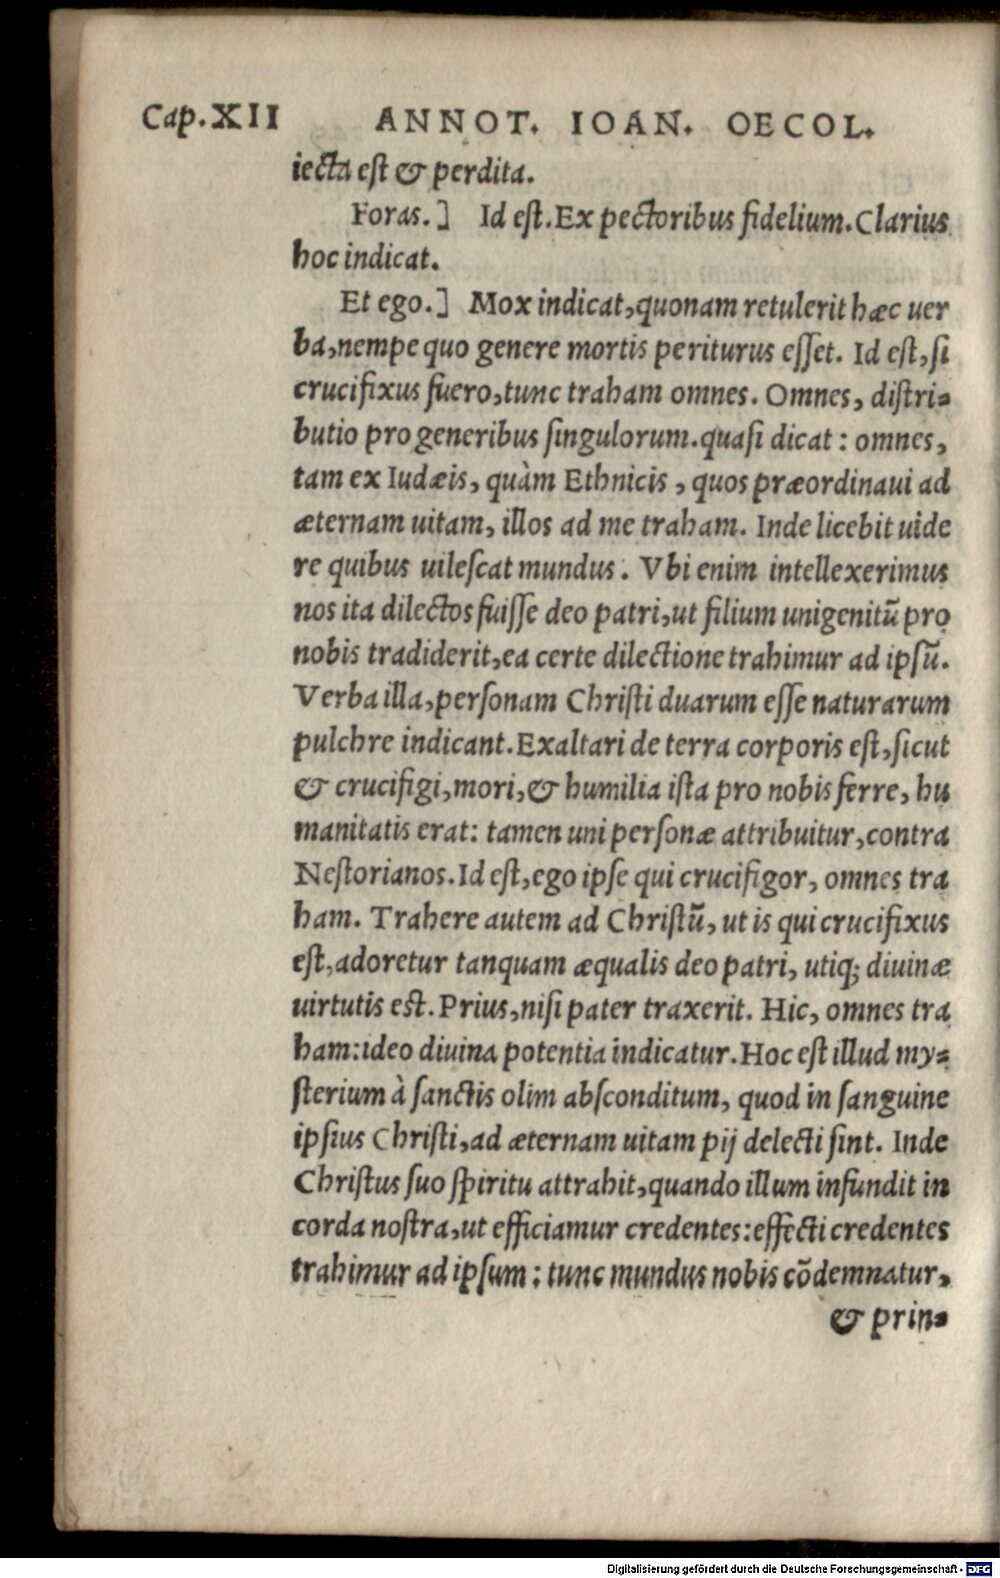 Cap.XII ANNOT. IOAN. OECOL.
iecta est & perdita.
Foras.] Id est. Ex pectoribus fidelium. Clarius
hoc indicat.
Et ego.] Mox indicat, quonam retulerit hæc uer
ba, nempe quo genere mortis periturus esset. Id est, si
crucifixus fuero, tunc traham omnes. Omnes, distri-
butio pro generibus singulorum. quasi dicat: omnes,
tam ex Iudæis, quàm Ethnicis, quos præordinaui ad
æternam uitam, illos ad me traham. Inde licebit uide
re quibus uilescat mundus. Vbi enim intellexerimus
nos ita dilectos fuisse deo patri, ut filium unigenitũ pro
nobis tradiderit, ea certe dilectione trahimur ad ipsũ.
Verba illa, personam Christi duarum esse naturarum
pulchre indicant. Exaltari de terra corporis est, sicut
& crucifigi, mori, & humilia ista pro nobis ferre, hu
manitatis erat: tamen uni personæ attribuitur, contra
Nestorianos. Id est, ego ipse qui crucifigor, omnes tra
ham. Trahere autem ad Christũ, ut is qui crucifixus
est, adoretur tanquam æqualis deo patri, utiq; diuinæ
uirtutis est. Prius, nisi pater traxerit. Hic, omnes tra
ham: ideo diuina potentia indicatur. Hoc est illud my-
sterium à sanctis olim absconditum, quod in sanguine
ipsius Christi, ad æternam uitam pij delecti sint. Inde
Christus suo spiritu attrahit, quando illum infundit in
corda nostra, ut efficiamur credentes: effecti credentes
trahimur ad ipsum: tunc mundus nobis cõdemnatur,
& prin-
Digitalisierung gefördert durch die Deutsche Forschungsgemeinschaft - DFG